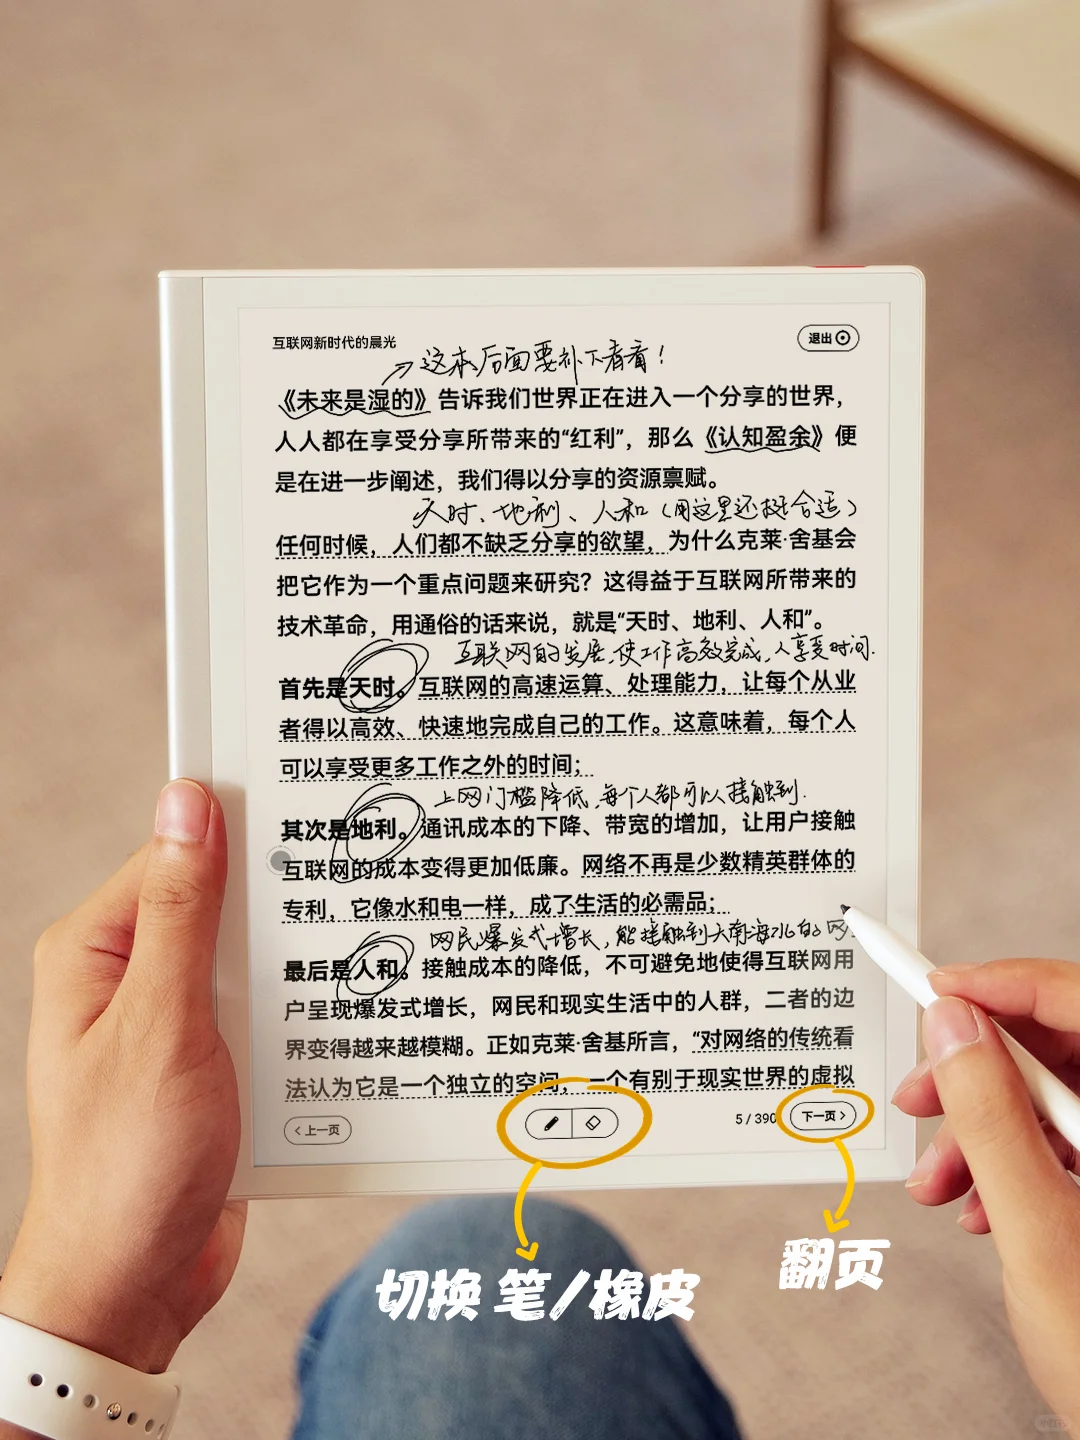 互联网新时代的晨光
退出
这本后面要补下看看！
《未来是湿的》告诉我们世界正在进入一个分享的世界，
人人都在享受分享所带来的“红利”，那么《认知盈余》便
是在进一步阐述，我们得以分享的资源禀赋。
天时、地利、人和（用这里还挺合适）
任何时候，人们都不缺乏分享的欲望，为什么克莱·舍基会
把它作为一个重点问题来研究？这得益于互联网所带来的
技术革命，用通俗的话来说，就是“天时、地利、人和”。
互联网的发展，使工作高效完成，人享受时间.
首先是天时。互联网的高速运算、处理能力，让每个从业
者得以高效、快速地完成自己的工作。这意味着，每个人
可以享受更多工作之外的时间；
上网门槛降低，每个人都可以接触到.
其次是地利。通讯成本的下降、带宽的增加，让用户接触
互联网的成本变得更加低廉。网络不再是少数精英群体的
专利，它像水和电一样，成了生活的必需品；
网民爆发式增长，能接触到大南海北的网
最后是人和。接触成本的降低，不可避免地使得互联网用
户呈现爆发式增长，网民和现实生活中的人群，二者的边
界变得越来越模糊。正如克莱·舍基所言，“对网络的传统看
法认为它是一个独立的空间，一个有别于现实世界的虚拟
上一页
5 / 390
下一页
切换 笔/橡皮
翻页
小红书